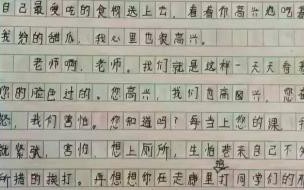 自己最爱吃的食物送上去，看着你高兴地吃着
我给的甜瓜，我心里也很高兴。
老师啊，老师。我们就是这样一天天看着
您的脸色过的。您高兴，我们也高兴，您
怒，我们害怕。您知道吗？每当上您的课
就紧张，害怕想上厕所，生怕若自己不
所措的挨打。再想想你在走廊里打同学们的